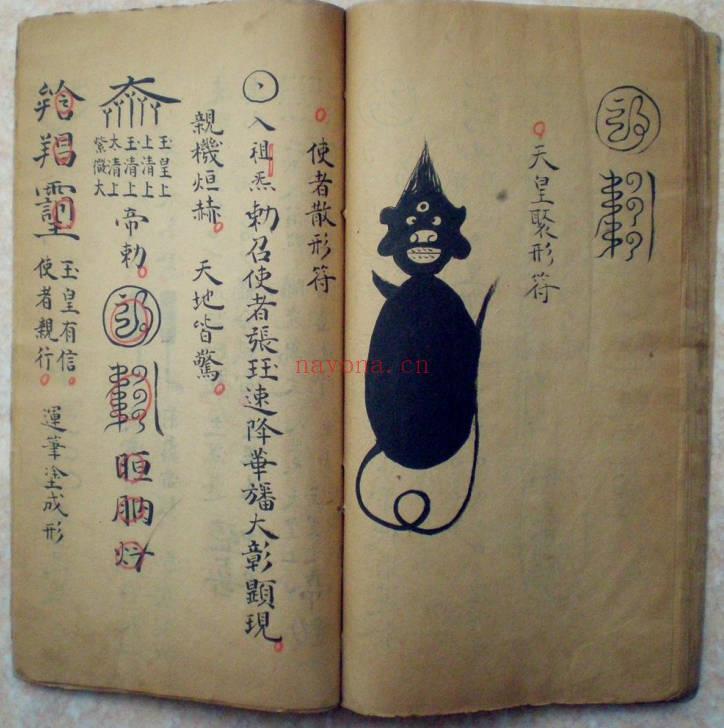 天皇聚形符
使者散形符
入祖炁勅召使者張珏速降華旛大彰顯現
親機烜赫 天地皆驚
玉皇上
上清上
玉清上
太清上
紫微大
帝勅
玉皇有信
使者親行
運筆塗成形
nayona.cn